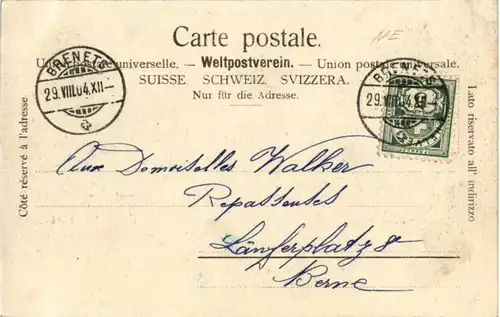 NE
Carte postale.
Union postale universelle. — Weltpostverein. — Union postale universale.
SUISSE. SCHWEIZ. SVIZZERA.
Nur für die Adresse.
BRENETS
29.VIII.04.XII
BRENETS
29.VIII.04.XII
Côté réservé à l'adresse
Lato riservato all' indirizzo
Aux Demoiselles Walker
Repasseuses
Länferplatz 8
Berne